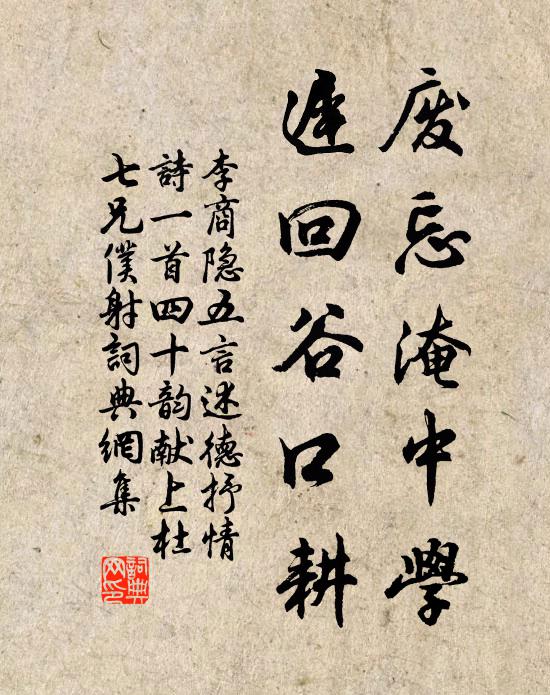 废忘淹中學
遲回谷口耕
李商隐五言述德抒情
詩一首四十韵献上杜
七兄僕射詞典網集
詞典
网印